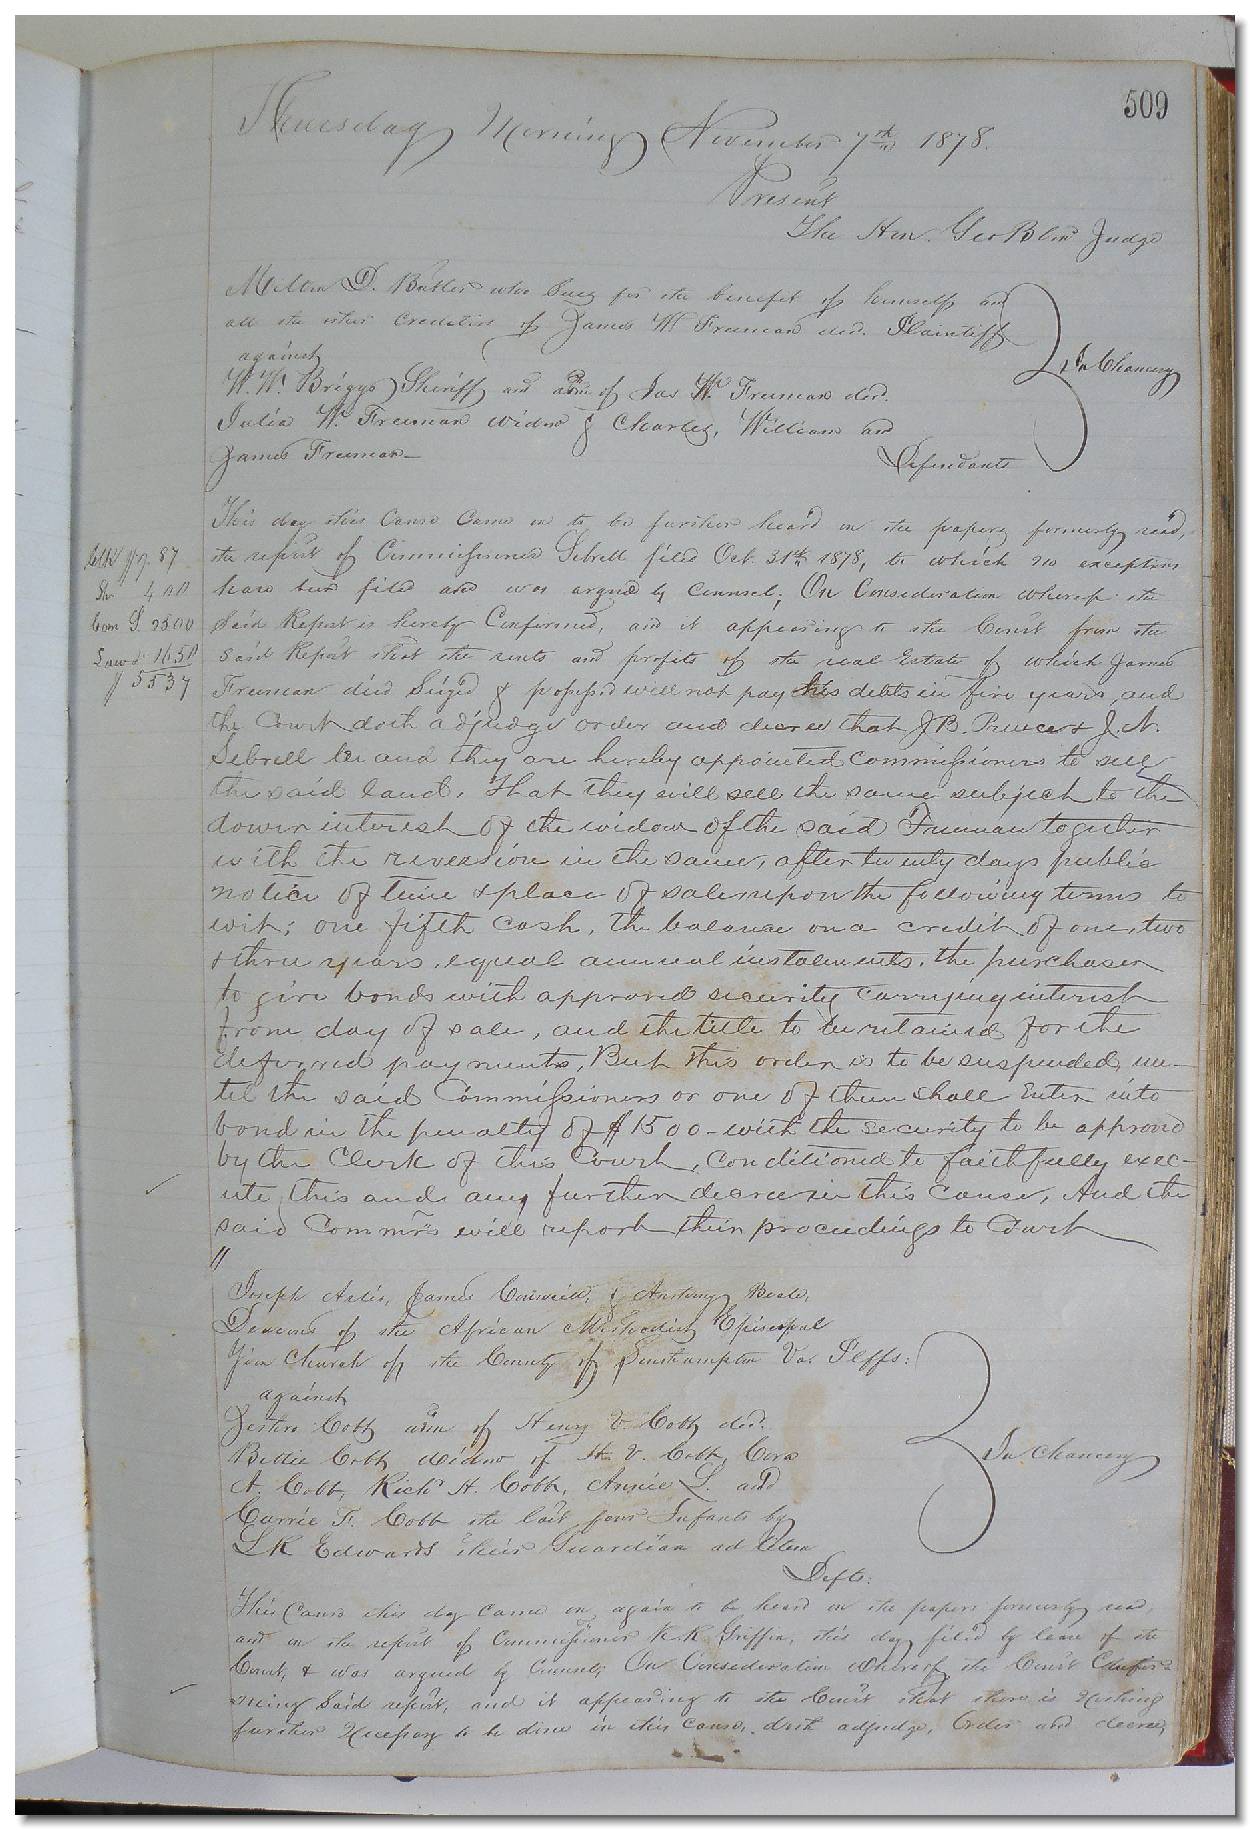 509
Thursday Morning November 7th 1878.
Present
The Hon. Geo Blow Judge
Milton D. Butler who Sues for the benefit of himself and
all the other Creditors of James W. Freeman decd. Plaintiff
against
In Chancery
W. W. Briggs Sheriff and adm of Jas W. Freeman decd.
Julia W. Freeman widow & Charles, William and
James Freeman
Defendants
This day this Cause Came on to be further heard on the papers formerly read,
the report of Commissioner Sebrell filed Oct. 31st 1878, to which no exceptions
have been filed and was argued by Counsel; On Consideration whereof the
Said Report is hereby Confirmed, and it appearing to the Court from the
Said Report that the rents and profits of the real Estate of which James
Freeman died Seized & possessed will not pay his debts in five years, and
the Court doth adjudge order and decree that J B. Prince & J. N.
Sebrell be and they are hereby appointed Commissioners to sell
the said land. That they will sell the same subject to the
dower interest of the widow of the said Freeman together
with the reversion in the same, after twenty days public
notice of time & place of sale upon the following terms to
wit; one fifth cash, the balance on a credit of one, two
& three years, equal annual instalments. the purchaser
to give bonds with approved security carrying interest
from day of sale, and the title to be retained for the
deferred payments, But this order is to be suspended un-
til the said Commissioners or one of them shall Enter into
bond in the penalty of $1500 - with the security to be approved
by the Clerk of this Court, conditioned to faithfully exec-
ute this and any further decree in this cause, And the
said Commrs will report their proceedings to Court
87
4.00
Com S. 25.00
16.50
$ 55 37
"
Joseph Artis, James & Anthony
Deacons of the African Methodist Episcopal
Zion Church of the County of Southampton Va. Plffs:
against
Jethro Cobb adm of Henry V. Cobb decd.
Bettie Cobb widow of H. V. Cobb, Cora
A. Cobb, Richd H. Cobb, Annie L. and
Carrie F. Cobb the last four Infants by
L R Edwards their Guardian ad litem
In Chancery
Defts:
This Cause this day Came on again to be heard on the papers formerly read,
and on the report of Commissioner K. R. Griffin, this day filed by leave of the
Court, & was argued by Counsel; On Consideration whereof the Court Confir-
ming Said report, and it appearing to the Court that there is Nothing
further Necessary to be done in this cause, doth adjudge, Order and decree,